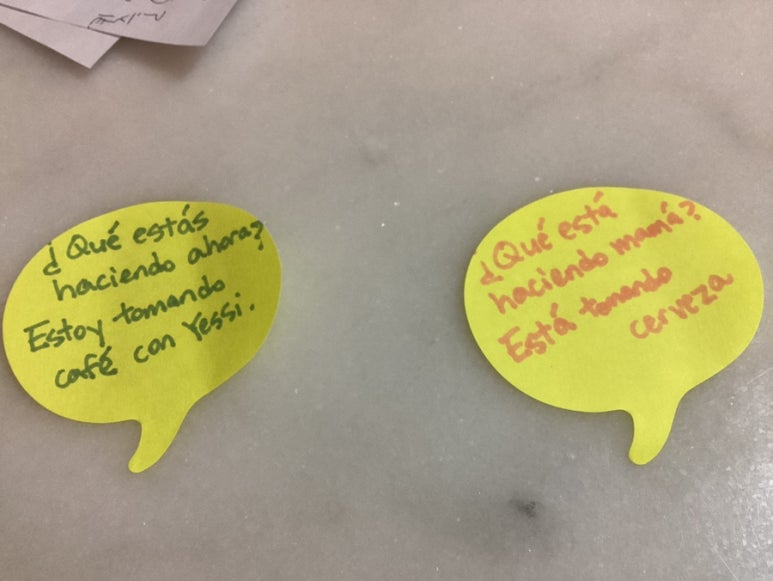 ¿Qué estás
haciendo ahora?
Estoy tomando
café con Yessi.
¿Qué está
haciendo mamá?
Está tomando
cerveza